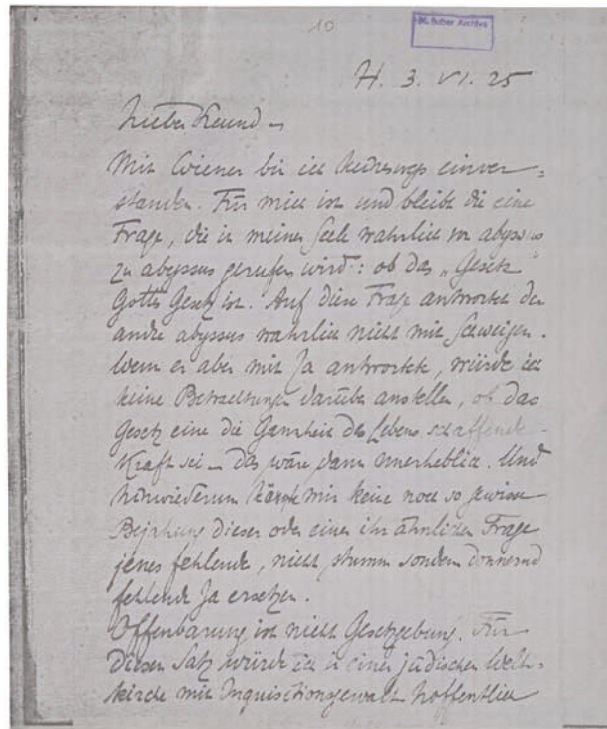 10
M. Buber Archive
H. 3. VI. 25
Lieber Freund –
Mit Wiener bin ich keineswegs einver=
standen. Für mich ist und bleibt die eine
Frage, die in meiner Seele wahrlich von abyssus
zu abyssus gerufen wird: ob das „Gesetz"
Gottes Gesetz ist. Auf diese Frage antwortet der
andre abyssus wahrlich nicht mit Schweigen.
Wenn er aber mit Ja antwortete, würde ich
keine Betrachtungen darüber anstellen, ob das
Gesetz eine die Ganzheit des Lebens schaffende
Kraft sei – das wäre dann unerheblich. Und
hinwiederum könnte mir keine noch so gewisse
Bejahung dieser oder einer ihr ähnlichen Frage
jenes fehlende, nicht stumm sondern donnernd
fehlende Ja ersetzen.
Offenbarung ist nicht Gesetzgebung. Für
diesen Satz würde ich in einer jüdischen Welt=
kirche mit Inquisitionsgewalt hoffentlich